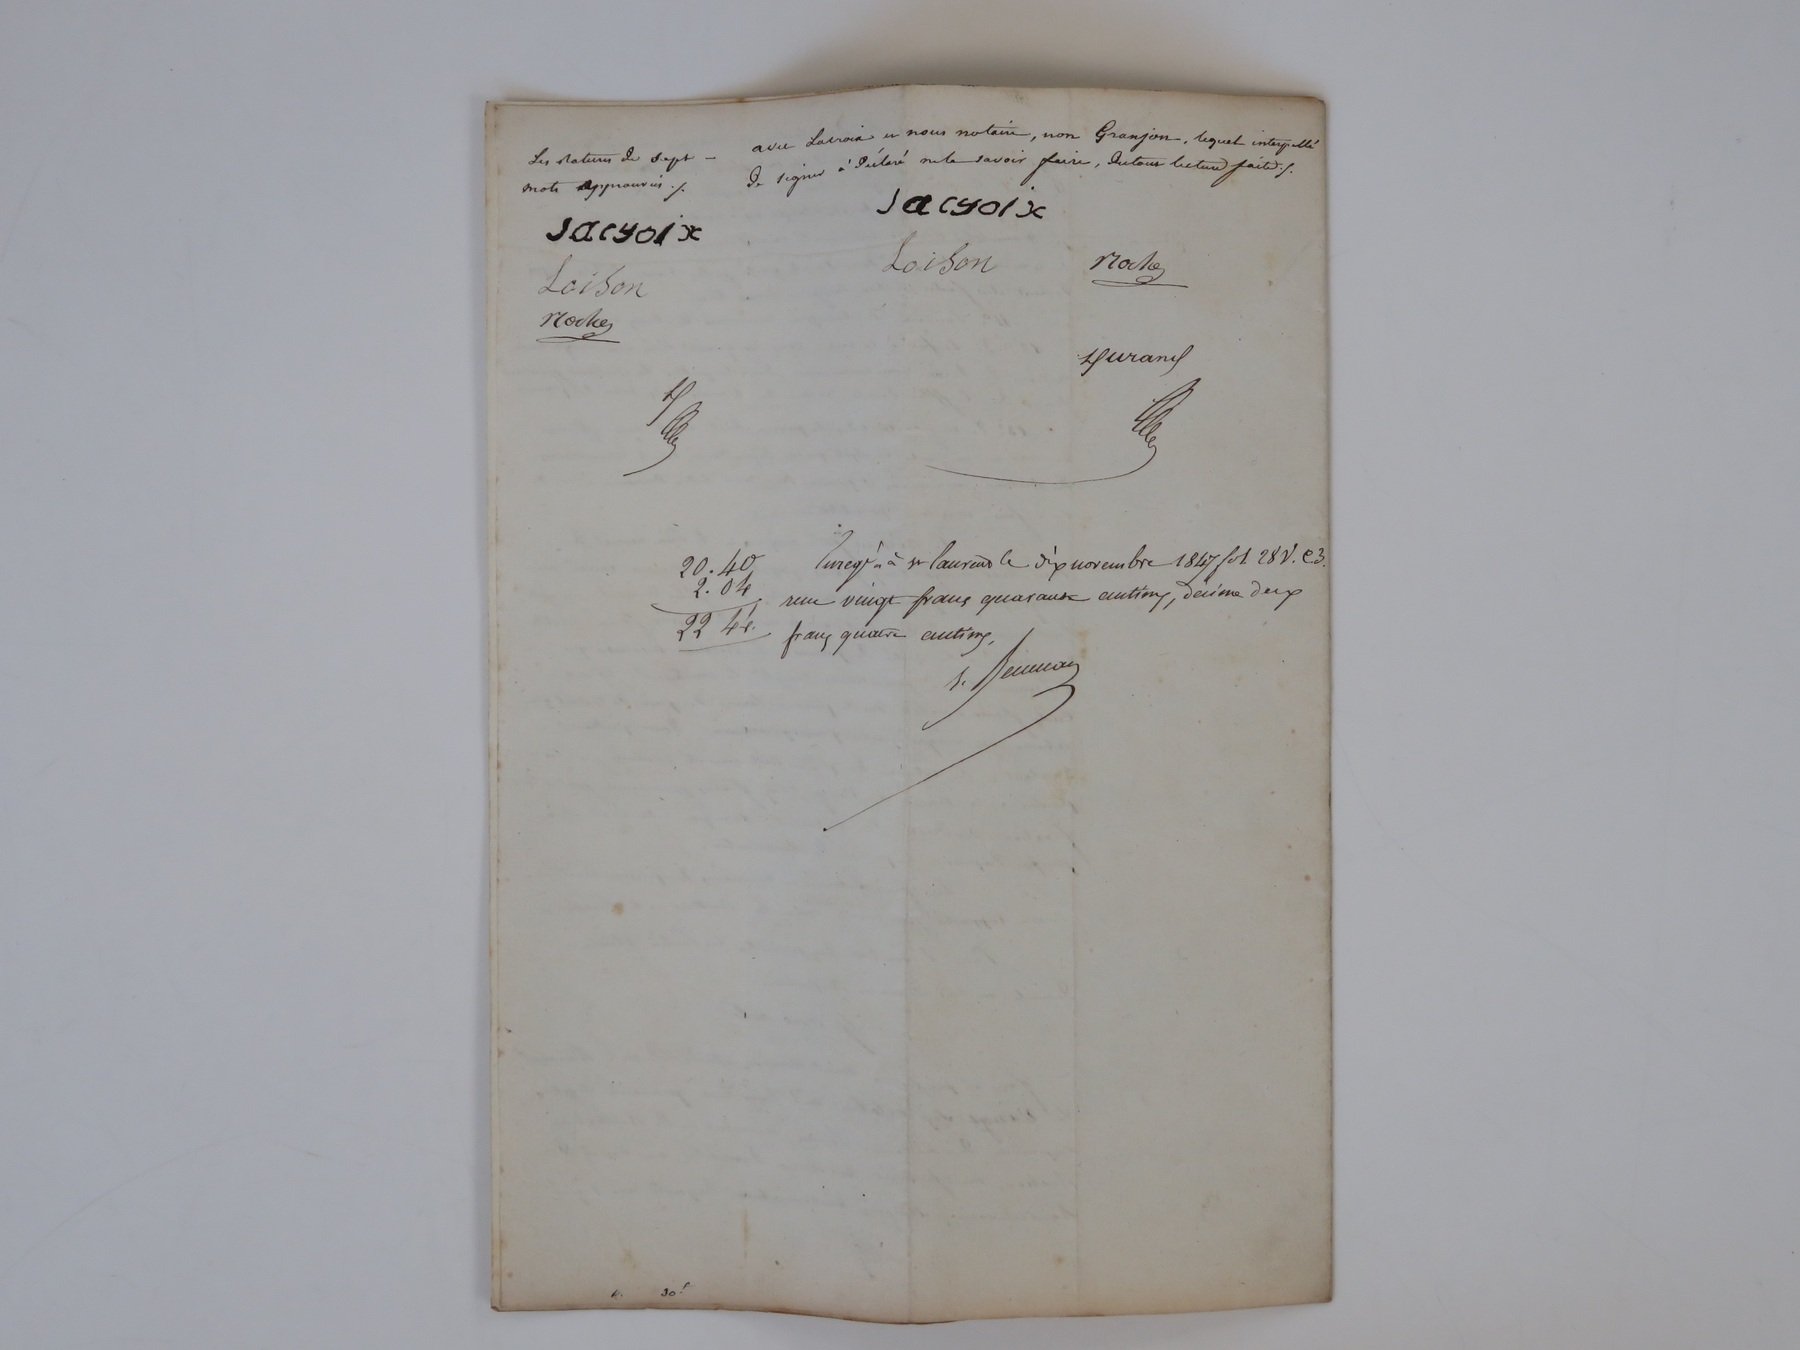 avec Lacroix et nous notaire, non Granjon, lequel interpellé
de signer à déclaré ne le savoir faire, du tout lecture faite ./.
Les ratures de sept –
mots approuvés ./.
Jacyoix
Loison
Roche
Jacyoix
Loison
Roche
Durand
20.40
2.04
22 44.
Enregé. à st laurent le dix novembre 1847 fol. 28 V. C 3.
reçu vingt francs quarante centimes, décime deux
francs quatre centimes.
30 f